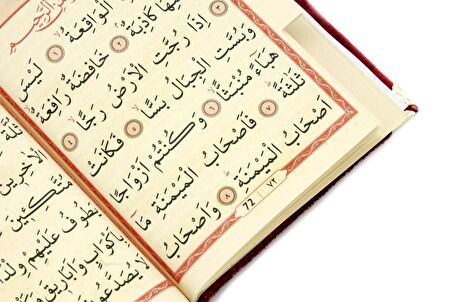 الرَّحِيمِ
الْوَاقِعَةُ ١ لَيْسَ
كَاذِبَةٌ ٢ خَافِضَةٌ رَافِعَةٌ
٣ إِذَا رُجَّتِ الْأَرْضُ رَجًّا ٤
وَبُسَّتِ الْجِبَالُ بَسًّا ٥ فَكَانَتْ
هَبَاءً مُنْبَثًّا ٦ وَكُنْتُمْ أَزْوَاجًا
ثَلٰثَةً ٧ فَأَصْحَابُ الْمَيْمَنَةِ مَا
أَصْحَابُ الْمَيْمَنَةِ ٨ وَأَصْحَابُ
72 ٧٢
ثُلَّةٌ
الْاٰخِرِينَ
مُتَّكِئِينَ
يَطُوفُ عَلَيْهِمْ
بِأَكْوَابٍ وَأَبَارِيقَ
لَا